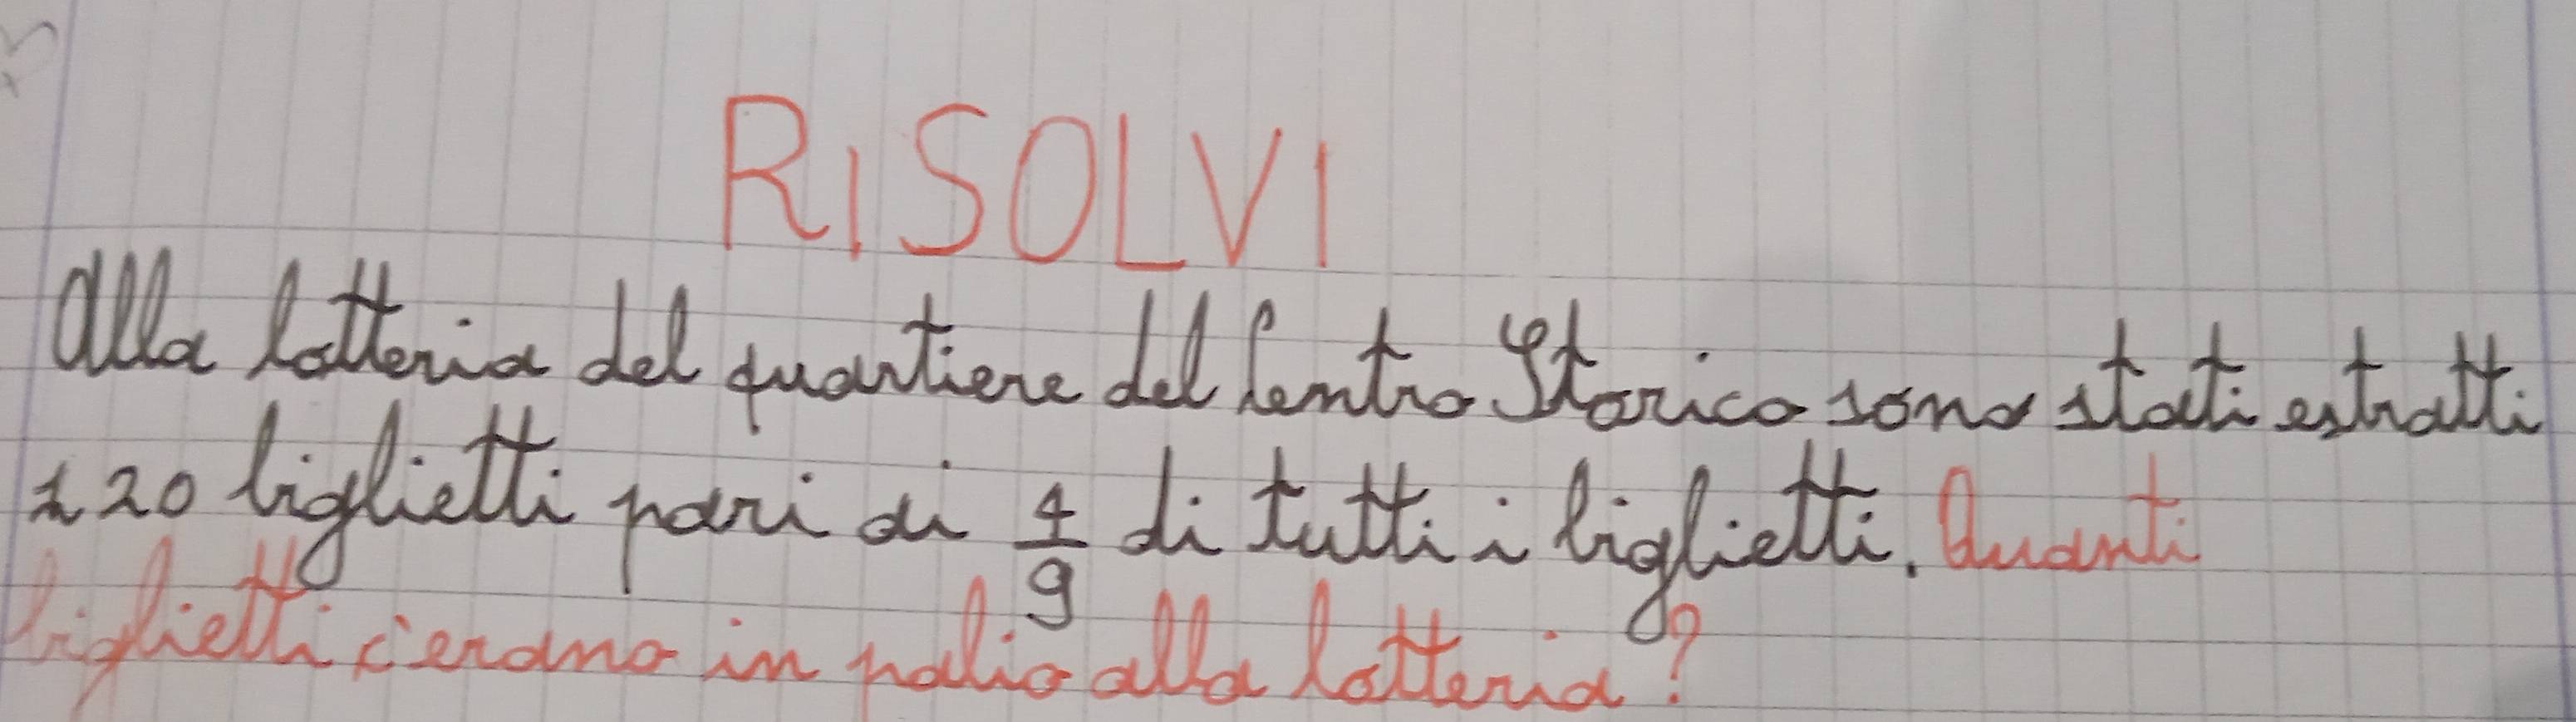 RISOLVI
Alla lotteria del quartiere del Centro Storico sono stati estratti
120 biglietti pari ai 4/9 di tutti i biglietti. Quanti
biglietti c'erano in palio alla lotteria?